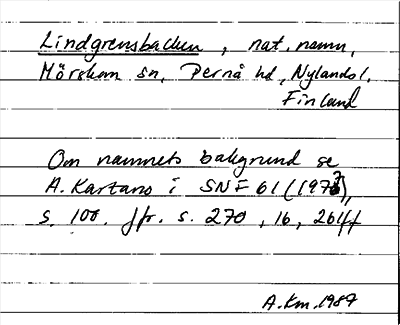 Lindgrensbacken, nat. namn,
Mörskom sn, Pernå hd, Nylands l,
Finland
Om namnets bakgrund se
A. Kartano i SNF 61 (1973),
s. 100. Jfr. s. 270, 16, 261ff
A.Km.1987